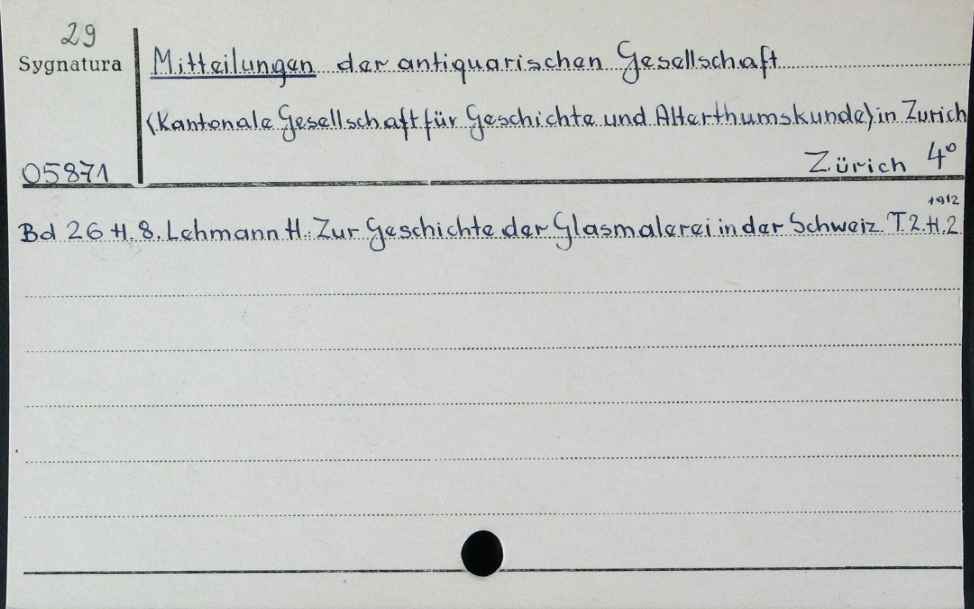 29
Sygnatura
Mitteilungen der antiquarischen Gesellschaft
(Kantonale Gesellschaft für Geschichte und Alterthumskunde) in Zurich
05871
Zürich 4°
1912
Bd 26 H. 8. Lehmann H. Zur Geschichte der Glasmalerei in der Schweiz T. 2. H. 2